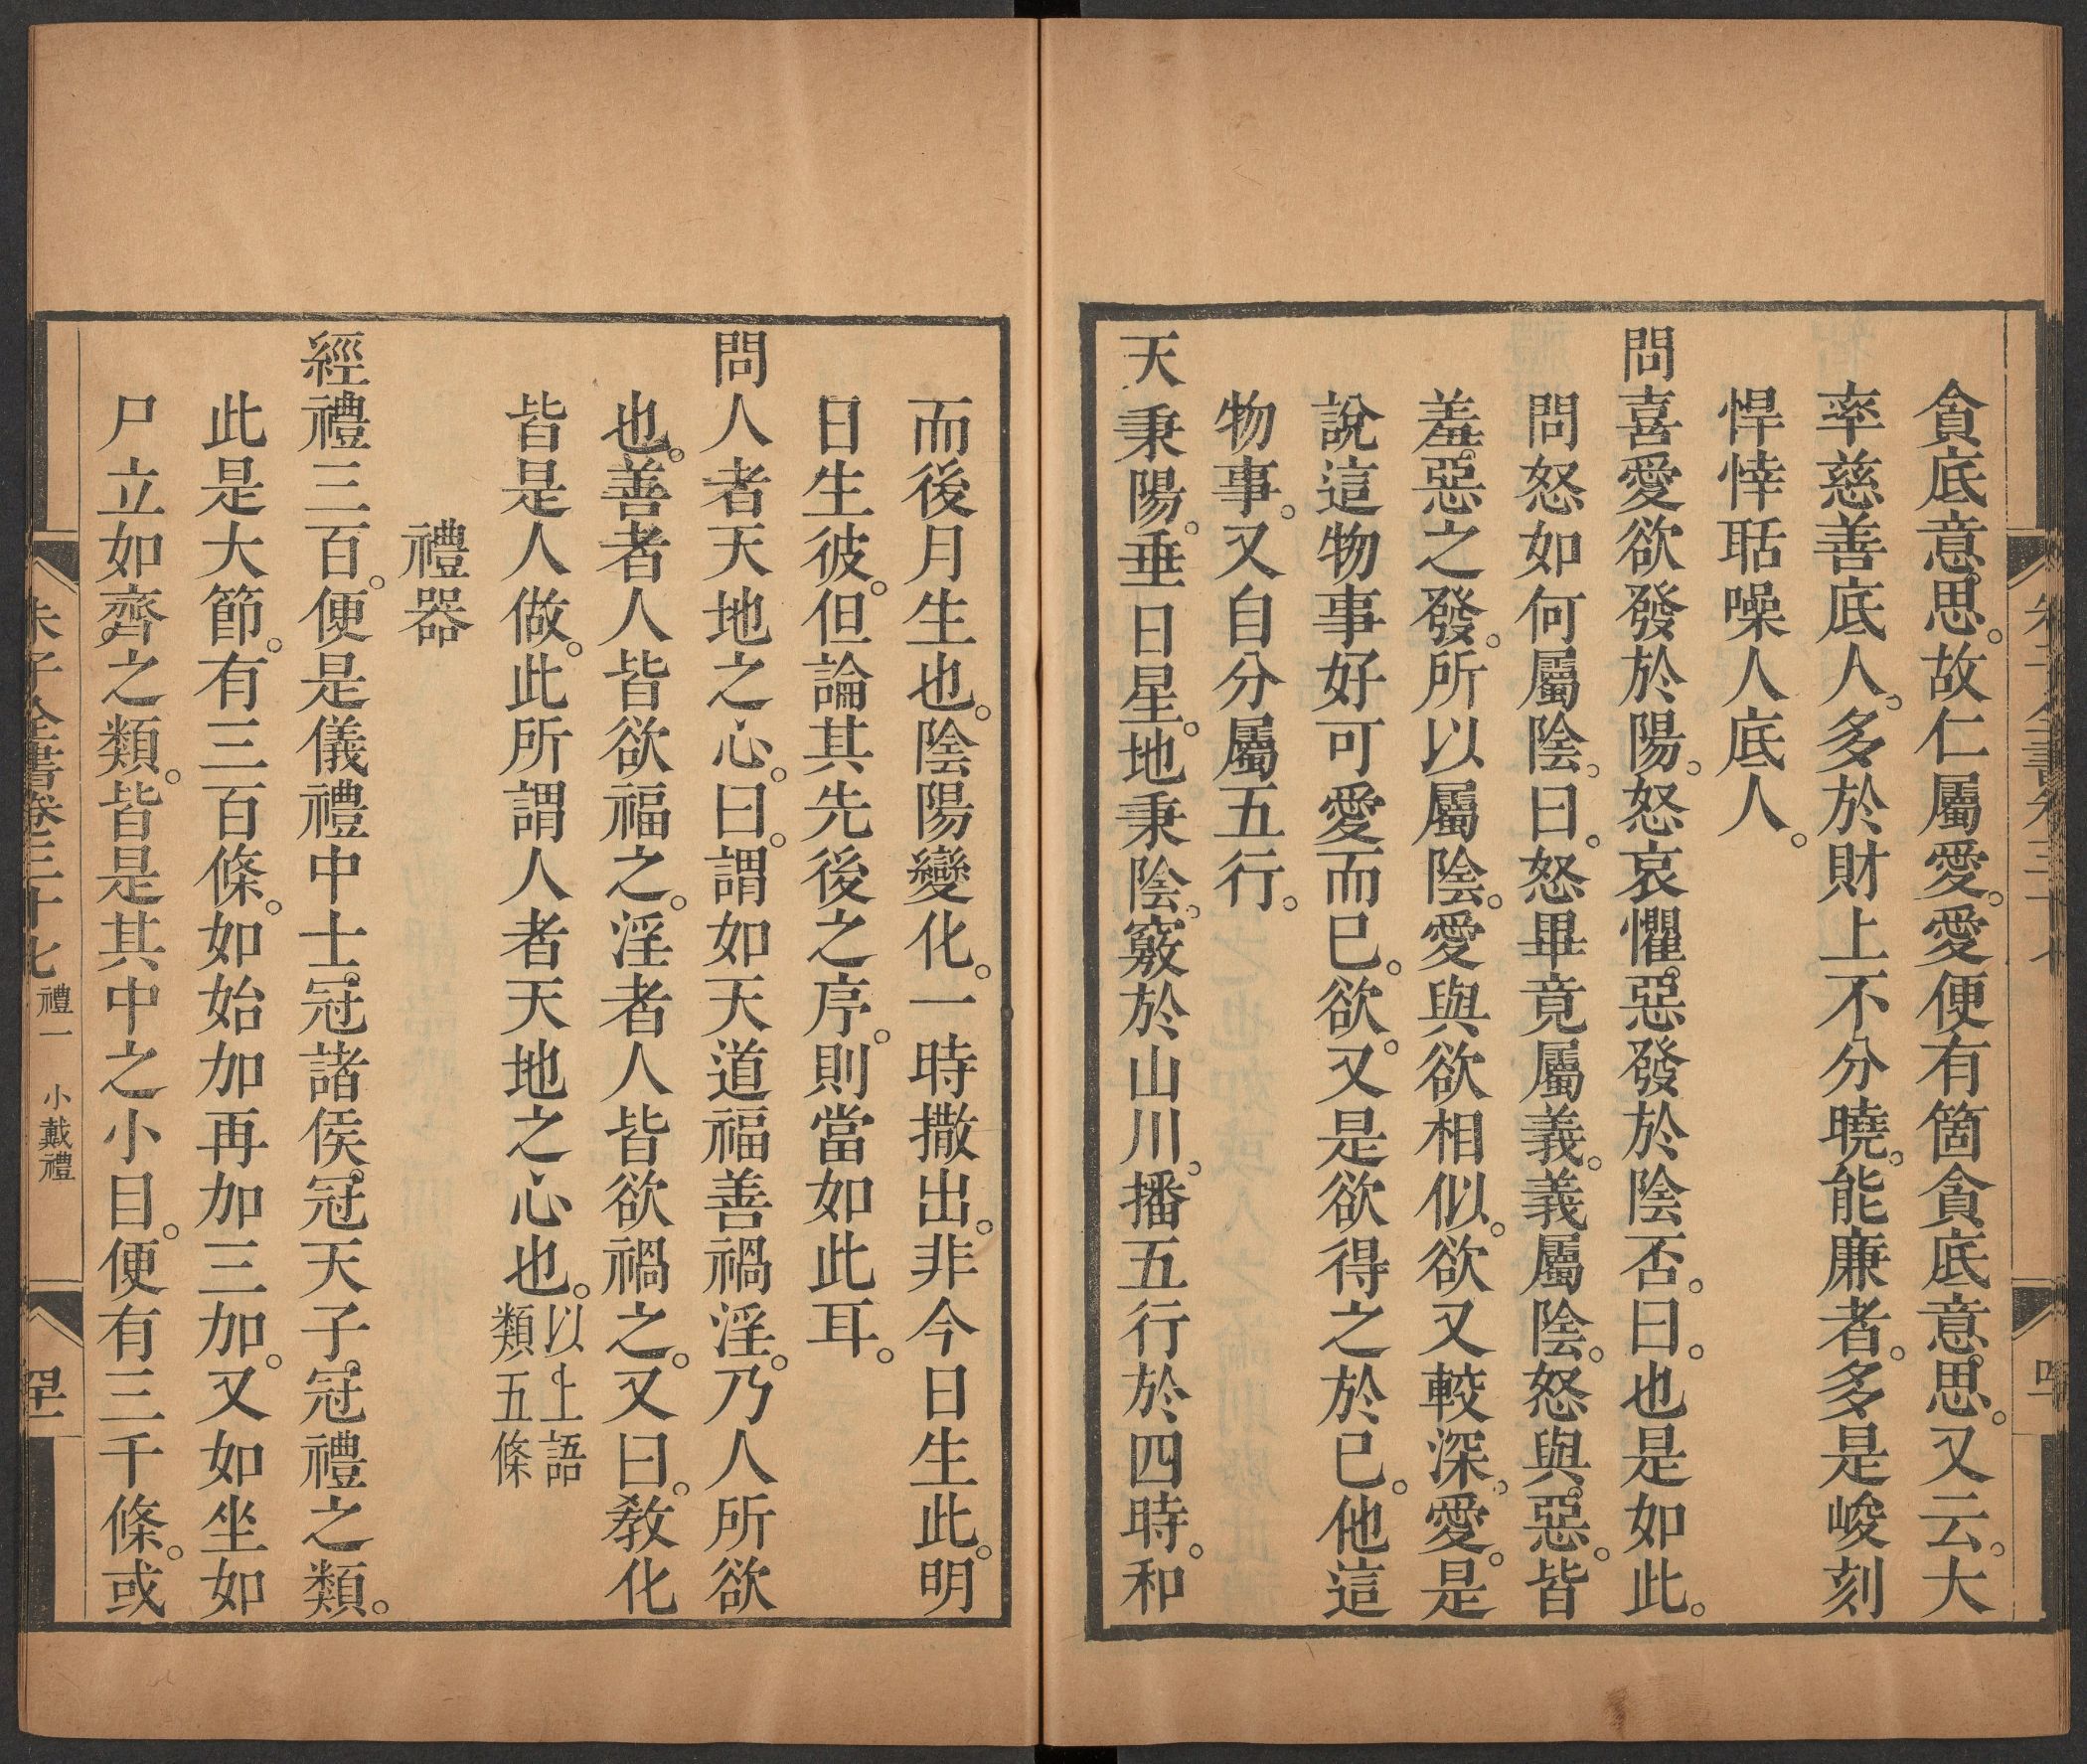 貪底意思。故仁屬愛。愛便有箇貪底意思。又云。大
率慈善底人。多於財上不分曉。能廉者。多是峻刻
悍悻聒噪人底人。
問喜愛欲發於陽。怒哀懼惡發於陰否。曰。也是如此。
問怒如何屬陰。曰。怒畢竟屬義。義屬陰。怒與惡。皆
羞惡之發。所以屬陰。愛與欲相似。欲又較深。愛。是
說這物事好可愛而已。欲。又是欲得之於已。他這
物事。又自分屬五行。
天秉陽。垂日星。地秉陰。竅於山川。播五行於四時。和
而後月生也。陰陽變化。一時撒出。非今日生此。明
日生彼。但論其先後之序。則當如此耳。
問人者天地之心。曰。謂如天道福善禍淫。乃人所欲
也。善者人皆欲福之。淫者人皆欲禍之。又曰。教化
皆是人做。此所謂人者天地之心也。以上語類五條
禮器
經禮三百。便是儀禮中士冠諸侯冠天子冠禮之類。
此是大節。有三百條。如始加再加三加。又如坐如
尸立如齊之類。皆是其中之小目。便有三千條。或
朱子全書卷三十七 禮一 小戴禮